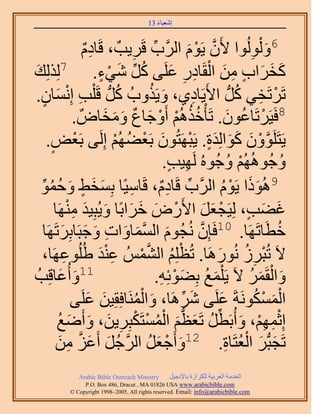 إشعياء 13
6وَلْوِلُوا لأَنَّ يَوْمَ الرَّبِّ قَرِيبٌ، قَادِمٌ
كَخَرَابٍ مِنَ الْقَادِرِ عَلَى كُلِّ شَيْءٍ. 7لِذلِكَ
تَرْتَخِي كُلُّ الأَيَادِي، وَيَذُوبُ كُلُّ قَلْبِ إِنْسَانٍ.
8فَيَرْتَاعُونَ. تَأْخُذُهُمْ أَوْجَاعٌ وَمَخَاضٌ.
يَتَلَوَّوْنَ كَوَالِدَةٍ. يَبْهَتُونَ بَعْضُهُمْ إِلَى بَعْضٍ.
وُجُوهُهُمْ وُجُوهُ لَهِيبٍ.
9هُوَذَا يَوْمُ الرَّبِّ قَادِمٌ، قَاسِيًا بِسَخَطٍ وَحُمُوِّ
غَضَبٍ، لِيَجْعَلَ الأَرْضَ خَرَابًا وَيُبِيدَ مِنْهَا
خُطَاتَهَا. 10فَإِنَّ نُجُومَ السَّمَاوَاتِ وَجَبَابِرَتَهَا
لاَ تُبْرِزُ نُورَهَا. تُظْلِمُ الشَّمْسُ عِنْدَ طُلُوعِهَا،
وَالْقَمَرُ لاَ يَلْمَعُ بِضَوْئِهِ. 11وَأُعَاقِبُ
الْمَسْكُونَةَ عَلَى شَرِّهَا، وَالْمُنَافِقِينَ عَلَى
إِثْمِهِمْ، وَأُبَطِّلُ تَعَظُّمَ الْمُسْتَكْبِرِينَ، وَأَضَعُ
تَجَبُّرَ الْعُتَاةِ. 12وَأَجْعَلُ الرَّجُلَ أَعَزَّ مِنَ
Arabic Bible Outreach Ministry الخدمة العربية للكرازة بالإنجيل
P.O. Box 486, Dracut , MA 01826 USA www.arabicbible.com
© Copyright 1998–2005, All rights reserved. Email: info@arabicbible.com